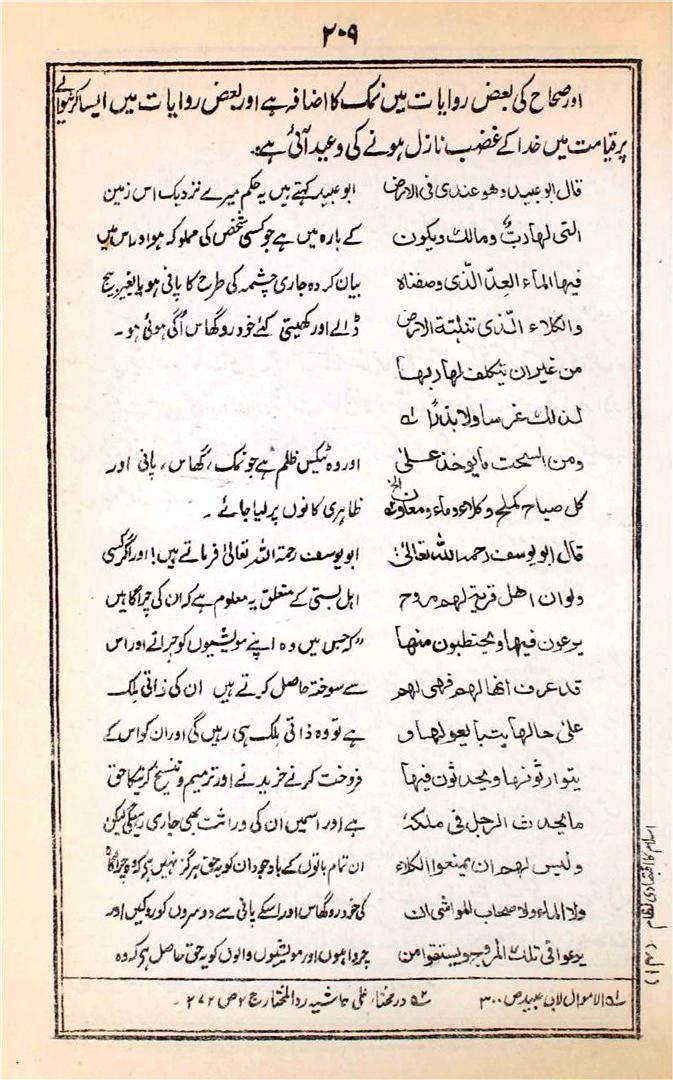 ۲۰۹
اور صحاح کی بعض روایات میں نمک کا اضافہ ہے اور بعض روایات میں ایسا کرنیوالے
پر قیامت میں خدا کے غضب نازل ہونے کی وعید آئی ہے۔
قال ابو عبید وھو عندی فی الارض
التی لھا ربٌ ومالک ویکون
فیھا الماء العدّ الّذی وصفناہ
والکلاء الّذی تنبتہ الارض
من غیر ان یتکلف لھا ربھا
لذلک غرسا ولا بذرًا ؎۱
ومن السحت مایوخذ علیٰ
کل صباح کملح وکلاء وماء ومعادن ؎۲
قال ابو یوسف رحمہ اللہ تعالیٰ:
ولو ان اھل قریۃ لھم مروج
یرعون فیھا ویحتطبون منھا
قد عرف انھا لھم فھی لھم
علیٰ حالھا یتبایعونھا و
یتوارثونھا ویحدثون فیھا
مایحدث الرجل فی ملکہٖ
ولیس لھم ان یمنعوا الکلاء
ولا الماء ولا صحاب المواشی ان
یرعوا فی تلک المروج ویستقوا من
ابو عبید کہتے ہیں یہ حکم میرے نزدیک اس زمین
کے بارہ میں ہے جو کسی شخص کی مملوکہ ہو اور اس میں
بیان کردہ جاری چشمہ کی طرح کا پانی ہو یا بغیر بیج
ڈالے اور کھیتی کئے خودرو گھاس اُگی ہوئی ہو۔
اور وہ ٹیکس ظلم ہے جو نمک، گھاس، پانی اور
ظاہری کانوں پر لیا جائے۔
ابو یوسف رحمتہ اللہ تعالیٰ فرماتے ہیں! اور اگر کسی
اہل بستی کے متعلق یہ معلوم ہے کہ ان کی چراگاہیں
"کہ جس میں وہ اپنے مویشیوں کو چراتے اور اس
سے سوختہ حاصل کرتے ہیں ان کی ذاتی ملک
ہے تو وہ ذاتی ملک ہی رہیں گی اور ان کو اس کے
فروخت کرنے خریدنے اور ترمیم و تنسیخ کرنیکا حق
ہے اور اسمیں ان کی وراثت بھی جاری رہیگی لیکن
ان تمام باتوں کے باوجود ان کو یہ حق ہرگز نہیں ہے کہ وہ چراگاہ
کی خودرو گھاس اور اسکے پانی سے دوسروں کو روکیں اور
چرواہوں اور مویشیوں والوں کو یہ حق حاصل ہے کہ وہ
؎۱ الاموال لابی عبید ص ۳۰۰ ؎۲ در مختار علی حاشیہ رد المختار ج ۲ ص ۲۷۲۔
اسلام کا اقتصادی نظام